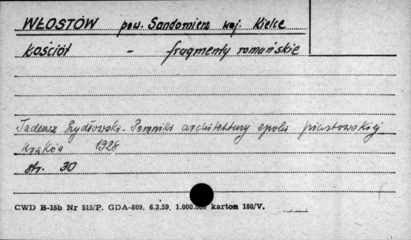 WŁOSTÓW pow. Sandomierz woj. Kielce
Kościół - fragmenty romańskie
Tadeusz Szydłowski. Pomniki architektury epoki piastowskiej
Kraków 1928
str. 30
CWD B-15b Nr 515/P. GDA-809. 6.3.59. 1.000.000 karton 180/V.